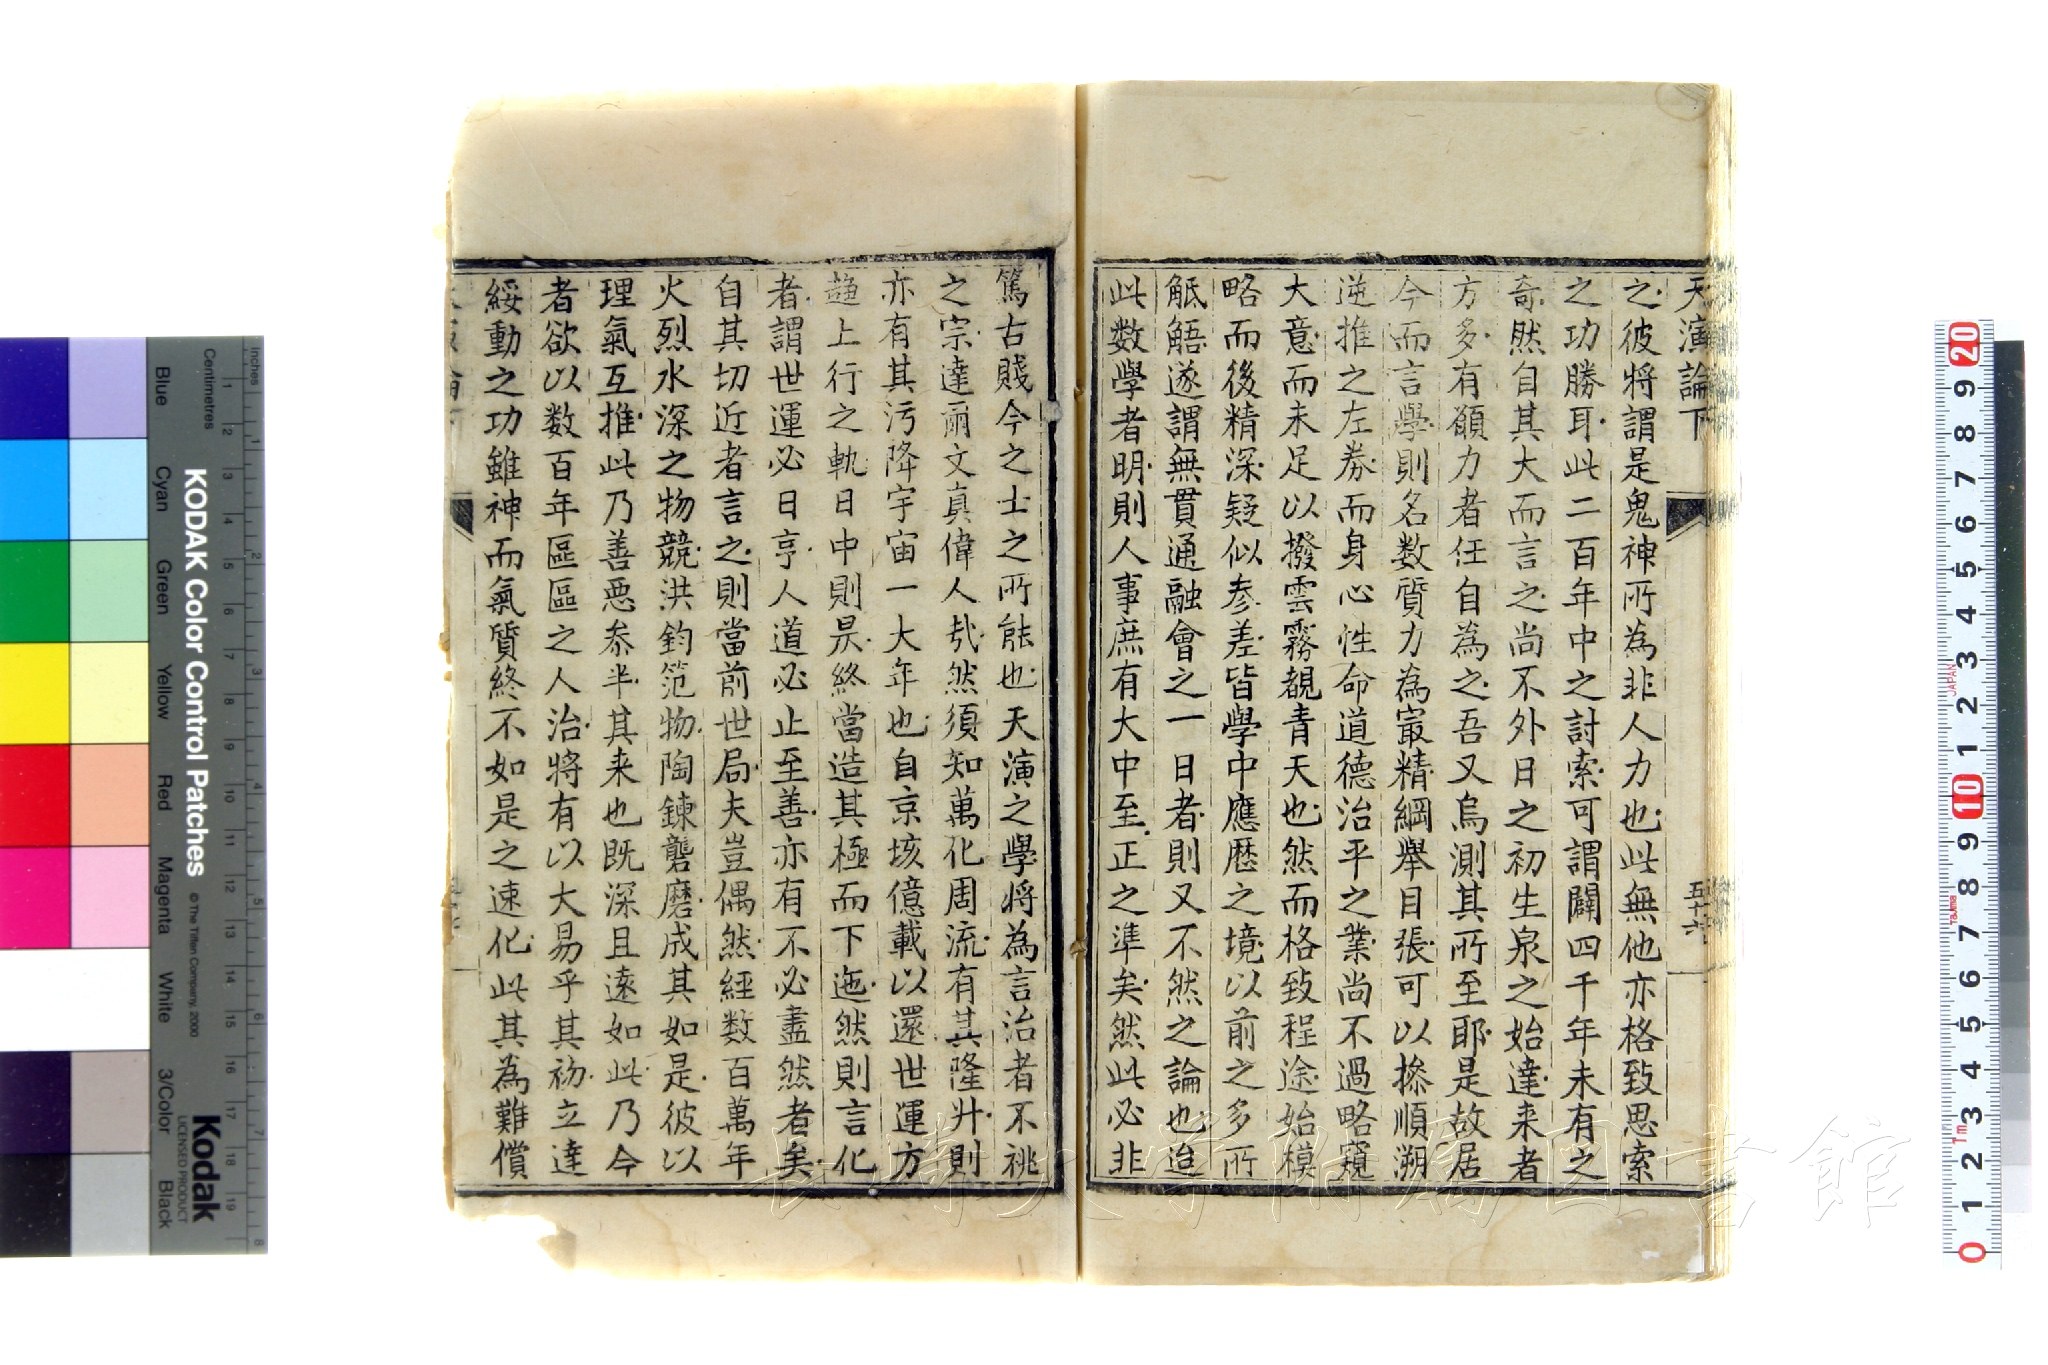 天演論下
五十六
之彼将謂是鬼神所為非人力也此無他亦格致思索
之功勝耳此二百年中之討索可謂闢四千年未有之
奇然自其大而言之尚不外日之初生泉之始達来者
方多有願力者任自為之吾又烏測其所至耶是故居
今而言學則名数質力為㝡精綱舉目張可以摻順溯
逆推之左券而身心性命道德治平之業尚不過略窺
大意而未足以撥雲霧覩青天也然而格致程途始模
略而後精深疑似参差皆學中應歷之境以前之多所
觝牾遂謂無貫通融會之一日者則又不然之論也迨
此数學者明則人事庶有大中至正之準矣然此必非
篤古賤今之士之所能也天演之學将為言治者不祧
之宗達爾文真偉人哉然須知萬化周流有其隆升則
亦有其污降宇宙一大年也自京垓億載以還世運方
趨上行之軌日中則昃終當造其極而下迤然則言化
者謂世運必日亨人道必止至善亦有不必盡然者矣
自其切近者言之則當前世局夫豈偶然經数百萬年
火烈水深之物競洪鈞笵物陶鍊礱磨成其如是彼以
理氣互推此乃善惡叅半其来也既深且遠如此乃今
者欲以数百年區區之人治将有以大易乎其初立達
綏動之功雖神而氣質終不如是之速化此其為難償
長崎大学附属図書館
KODAK Color Control Patches
© The Tiffen Company, 2000
Kodak
LICENSED PRODUCT
inches
Centimetres
Blue
Cyan
Green
Yellow
Red
Magenta
White
3/Color
Black
1 2 3 4 5 6 7 8
1 2 3 4 5 6 7 8 9 10 11 12 13 14 15 16 17 18 19
0 1 2 3 4 5 6 7 8 9 10 1 2 3 4 5 6 7 8 9 20
JAPAN
Tajima
Tm